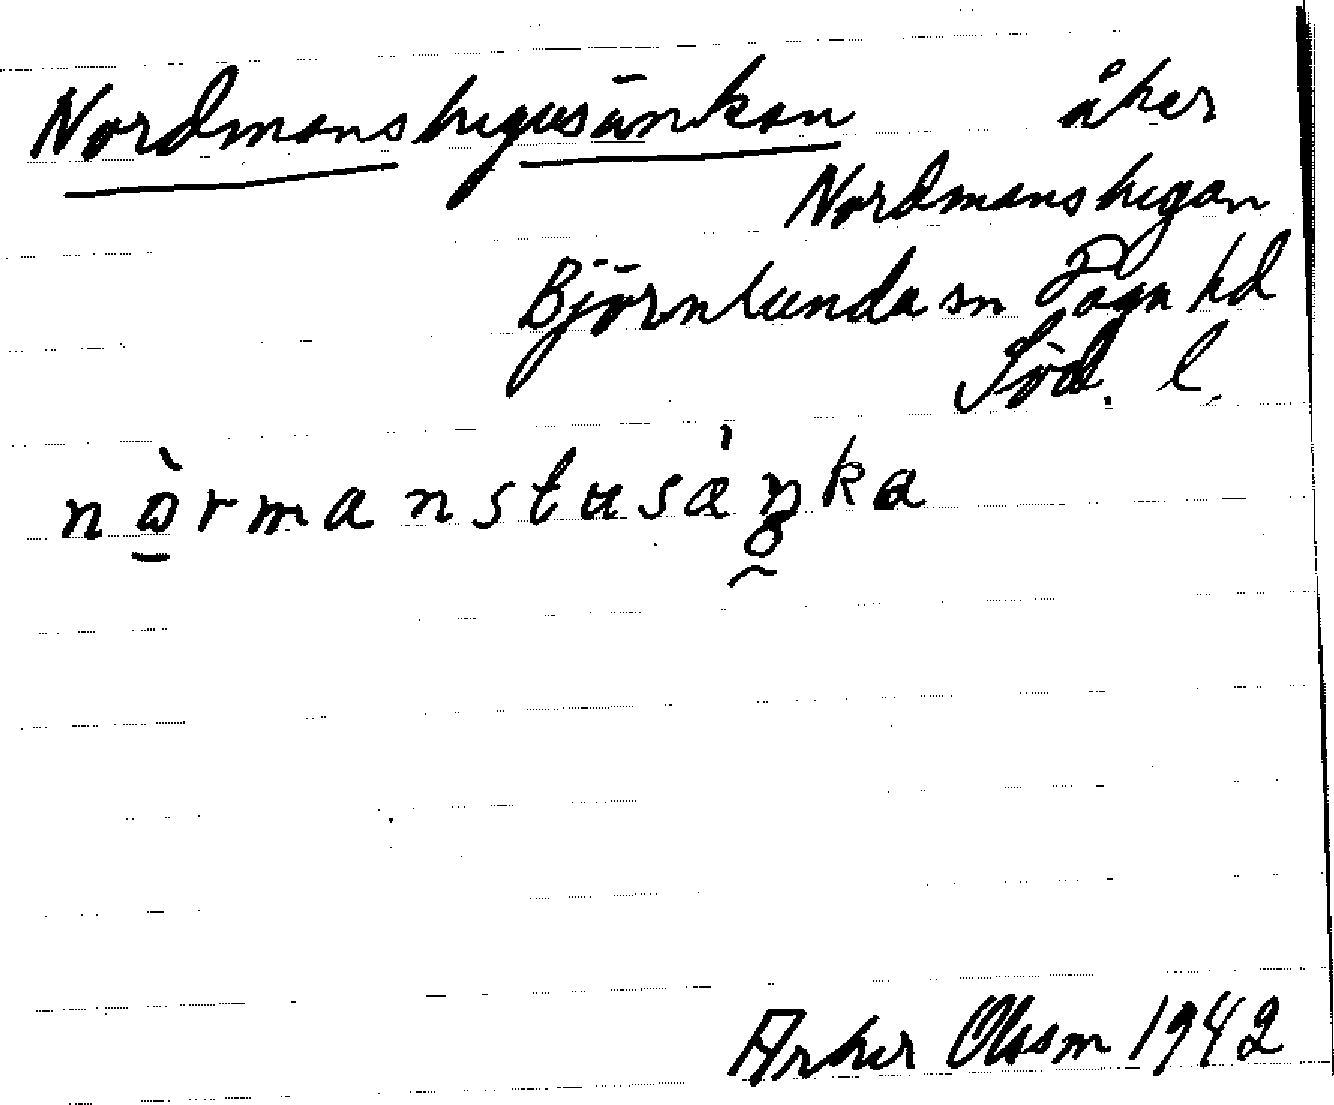 Nordmanstugusänkan åker
Nordmanstugan
Björnlunda sn Daga hd
Söd. l.
nòrmanstusáŋka
Olsson 1942